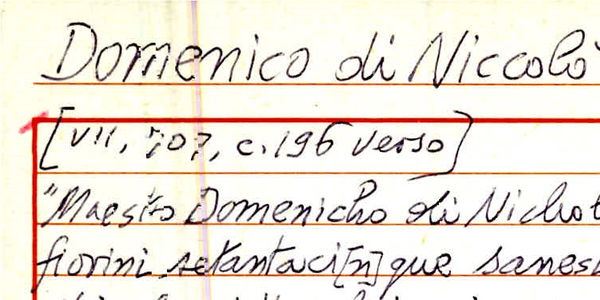 Domenico di Niccolò
[VII, 707, c. 196 verso]
"Maestro Domenicho di Nicho
fiorini setantaci[n]que sanesi